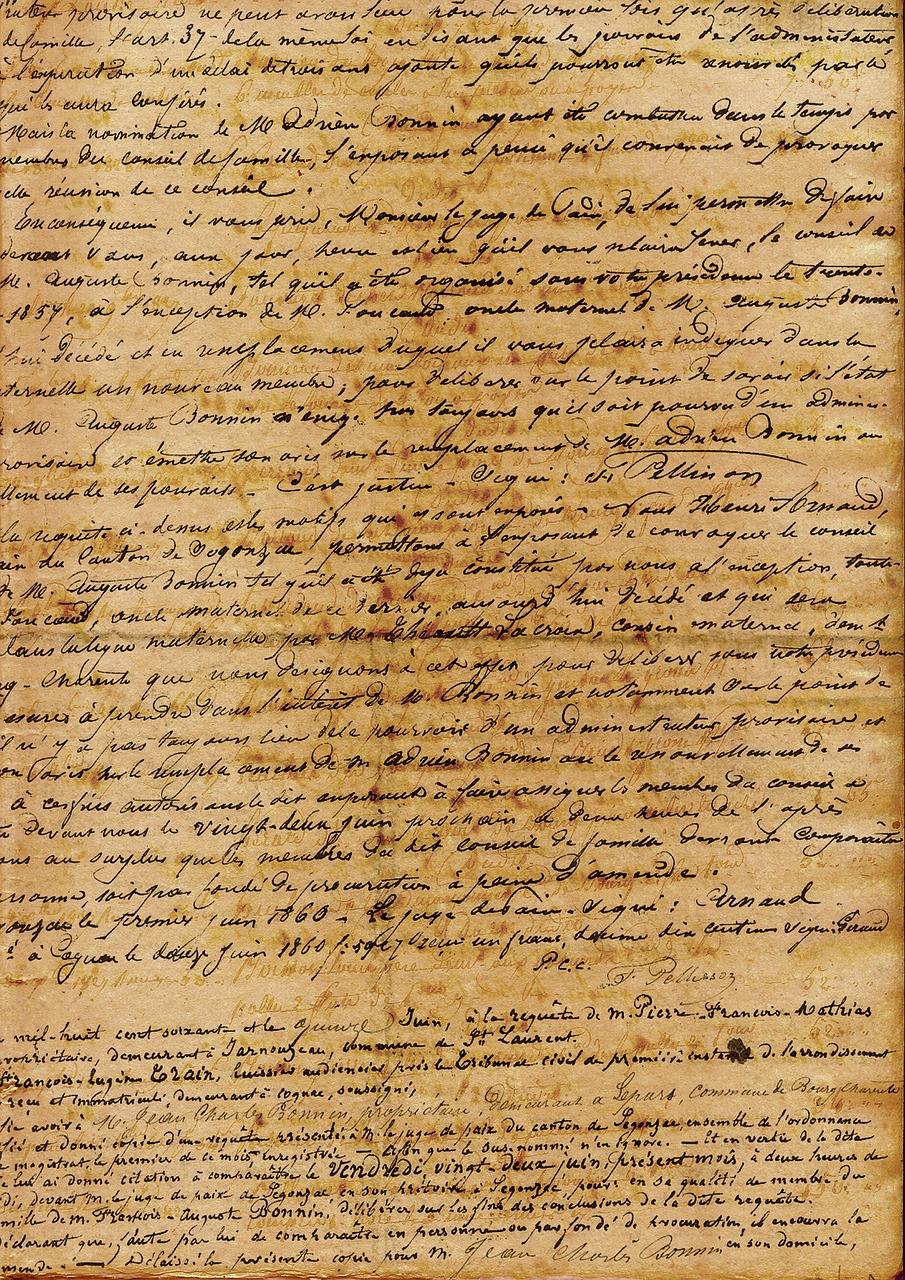 provisoire ne peut avoir lieu pour la première fois qu'après délibération
de famille, l'art. 37 de la même loi en disant que les pouvoirs de l'administrateur
à l'expiration d'un délai de trois ans ajoute qu'ils pourront être
qui les aura conférés.
Mais la nomination de M. Adrien Bonnin ayant été combattue dans le temps par
membres du conseil de famille, l'exposant a pensé qu'il convenait de provoquer
réunion de ce conseil.
En conséquence, il vous prie, Monsieur le juge de Paix, de lui permettre de faire
devant vous, aux jour, heure et lieu qu'il vous plaira fixer, le conseil de
M. Auguste Bonnin, tel qu'il a été organisé sous votre présidence le trente-
1857, à l'exception de M. Foucaud, oncle maternel de M. Auguste Bonnin,
décédé et en remplacement duquel il vous plaira indiquer dans la
ternelle un nouveau membre; pour délibérer sur le point de savoir si l'état
M. Auguste Bonnin n'exige pas toujours qu'il soit pourvu d'un adminis-
rovisoire et émettre son avis sur le remplacement de M. Adrien Bonnin ou
llement de ses pouvoirs - C'est justice - Signé: F. Pellisson
la requête ci-dessus et les motifs qui y sont exposés - Nous Henri Arnaud,
du Canton de Segonzac, permettons à l'exposant de convoquer le conseil
de M. Auguste Bonnin tel qu'il a été déjà constitué par nous à l'exception, toute-
Foucaud, oncle maternel de ce dernier, aujourd'hui décédé et qui sera
dans la ligne maternelle par M. Lacroix, cousin maternel, dem.t
Charente que nous désignons à cet effet pour délibérer sous notre présidence
esures à prendre dans l'intérêt de M. Bonnin et notamment sur le point de
il n'y a pas toujours lieu de le pourvoir d'un administrateur provisoire et
on avis sur le remplacement de M. Adrien Bonnin ou le renouvellement de ses
à ces fins autorisons le dit exposant à faire assigner les membres du conseil à
devant nous le vingt-deux juin prochain à deux heures de l'après
ons au surplus que les membres du dit conseil de famille devront comparaître
ersonne, soit par fondé de procuration à peine d'amende.
gonzac le premier juin 1860 - Le juge de Paix - Signé: Arnaud
à Cognac le douze juin 1860 reçu un franc, décime dix centimes signé: Giraud
P.c.c.
F. Pellisson
mil-huit cent soixante et le quinze Juin, à la requête de M. Pierre-François-Mathias
propriétaire, demeurant à Jarnouzeau, commune de St. Laurent.
François-Eugène Train, huissier audiencier près le Tribunal civil de première instance de l'arrondissement
reçu et immatriculé demeurant à cognac, soussigné,
fié avoir à M. Jean Charles Bonnin, propriétaire, demeurant à Lepars, commune de Bourg Charente
fié et donné copie d'une requête présentée à M. le juge de paix du canton de Segonzac, ensemble de l'ordonnance
magistrat, le premier de ce mois, enregistrée - afin que le sus-nommé n'en ignore. - Et en vertu de la dite
lui ai donné citation à comparaître le Vendredi vingt-deux juin, présent mois, à deux heures de
di, devant M. le juge de paix de Segonzac, en son prétoire à Segonzac, pour, en sa qualité de membre du
mille de M. François-Auguste Bonnin, délibérer sur les fins des conclusions de la dite requête.
déclarant que, faute par lui de comparaître en personne ou par fondé de procuration, il encourra la
mende. - Délaissé la présente copie pour M. Jean Charles Bonnin en son domicile,